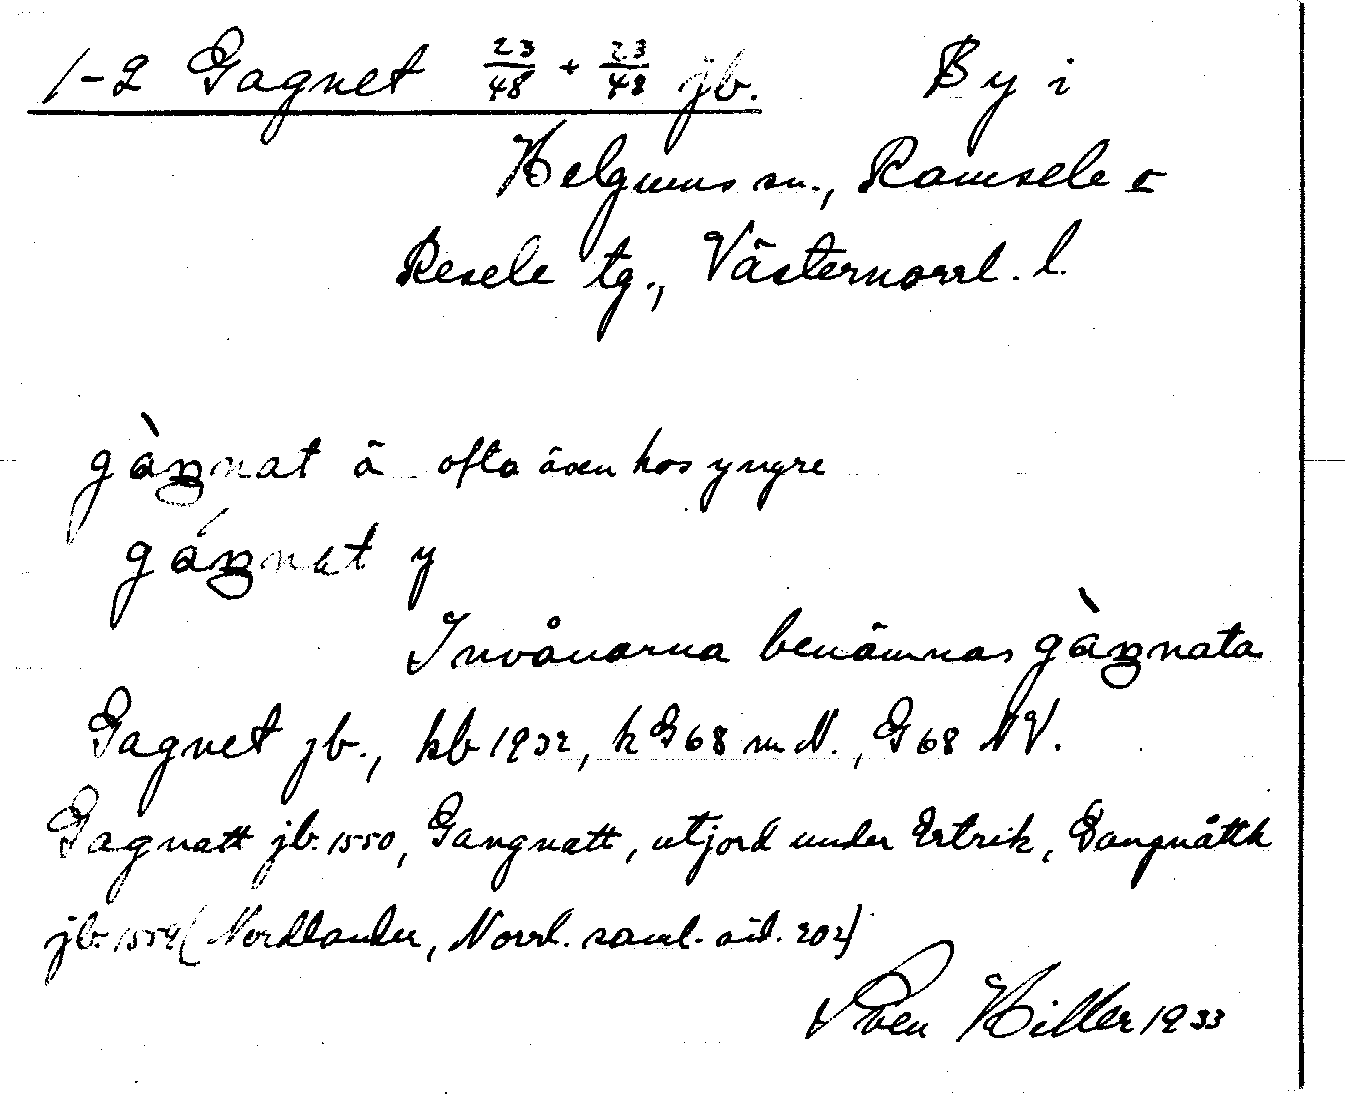 1-2 Gagnet 23/48 + 23/48 jb. By i
Helgums sn., Ramsele o
Resele tg., Västernorrl. l.
gàŋnat ä ofta även hos yngre
gáŋnat y
Invånarna benämnas gàŋnata
Gagnet jb., kb 1932, k G68 m N., G68 NV.
Gagnatt jb. 1550, Gangnatt, utjord under Ertrik, Gangnåttk
jb. 1559 (Nordlander, Norrl. saml. sid. 202)
Sven Hiller 1933